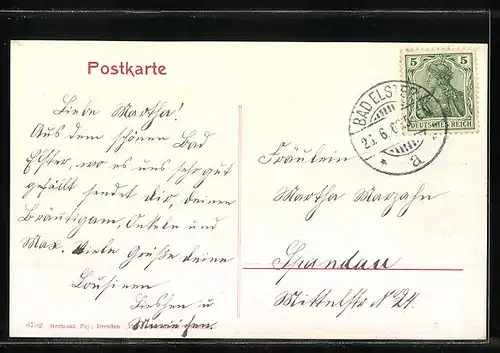 Postkarte
Liebe Martha!
Aus dem schönen Bad
Elster, wo es uns sehr gut
gefällt sendet dir, deinen
Bräutigam, Onkeln und
Max. Viele Grüße deine
Cousinen
Lieschen u
Mariechen.
6702 Hermann Poy, Dresden
BAD ELSTER
a
5 5
DEUTSCHES REICH
Fräulein
Martha Marzahn
Spandau
Mittelstr No 24.